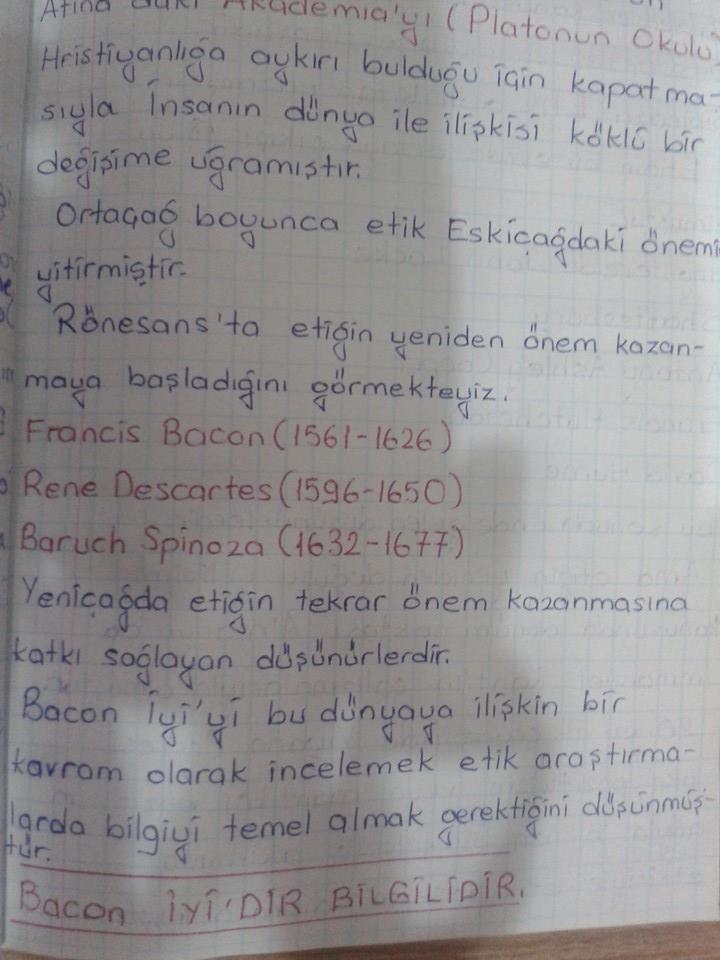 Atina'daki Akademia'yı (Platonun Okulu)
Hristiyanlığa aykırı bulduğu için kapatma-
sıyla İnsanın dünya ile ilişkisi köklü bir
değişime uğramıştır.
Ortaçağ boyunca etik Eskiçağdaki önemi
yitirmiştir.
Rönesans'ta etiğin yeniden önem kazan-
maya başladığını görmekteyiz.
Francis Bacon (1561-1626)
Rene Descartes (1596-1650)
Baruch Spinoza (1632-1677)
Yeniçağda etiğin tekrar önem kazanmasına
katkı sağlayan düşünürlerdir.
Bacon İyi'yi bu dünyaya ilişkin bir
kavram olarak incelemek etik araştırma-
larda bilgiyi temel almak gerektiğini düşünmüş-
tür.
Bacon İYİ'DİR BİLGİLİDİR.